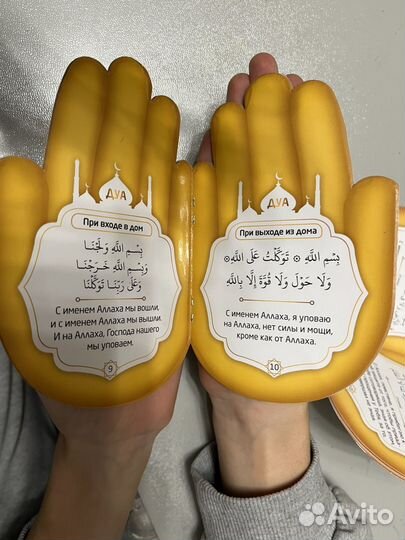 ДУА
При входе в дом
بِسْمِ اللَّهِ وَلَجْنَا
وَبِسْمِ اللَّهِ خَرَجْنَا
وَعَلَى رَبِّنَا تَوَكَّلْنَا
С именем Аллаха мы вошли,
и с именем Аллаха мы вышли.
И на Аллаха, Господа нашего
мы уповаем.
9
ДУА
При выходе из дома
بِسْمِ اللَّهِ ۞ تَوَكَّلْتُ عَلَى اللَّهِ۞
وَلَا حَوْلَ وَلَا قُوَّةَ إِلَّا بِاللَّهِ
С именем Аллаха, я уповаю
на Аллаха, нет силы и мощи,
кроме как от Аллаха.
10
Avito